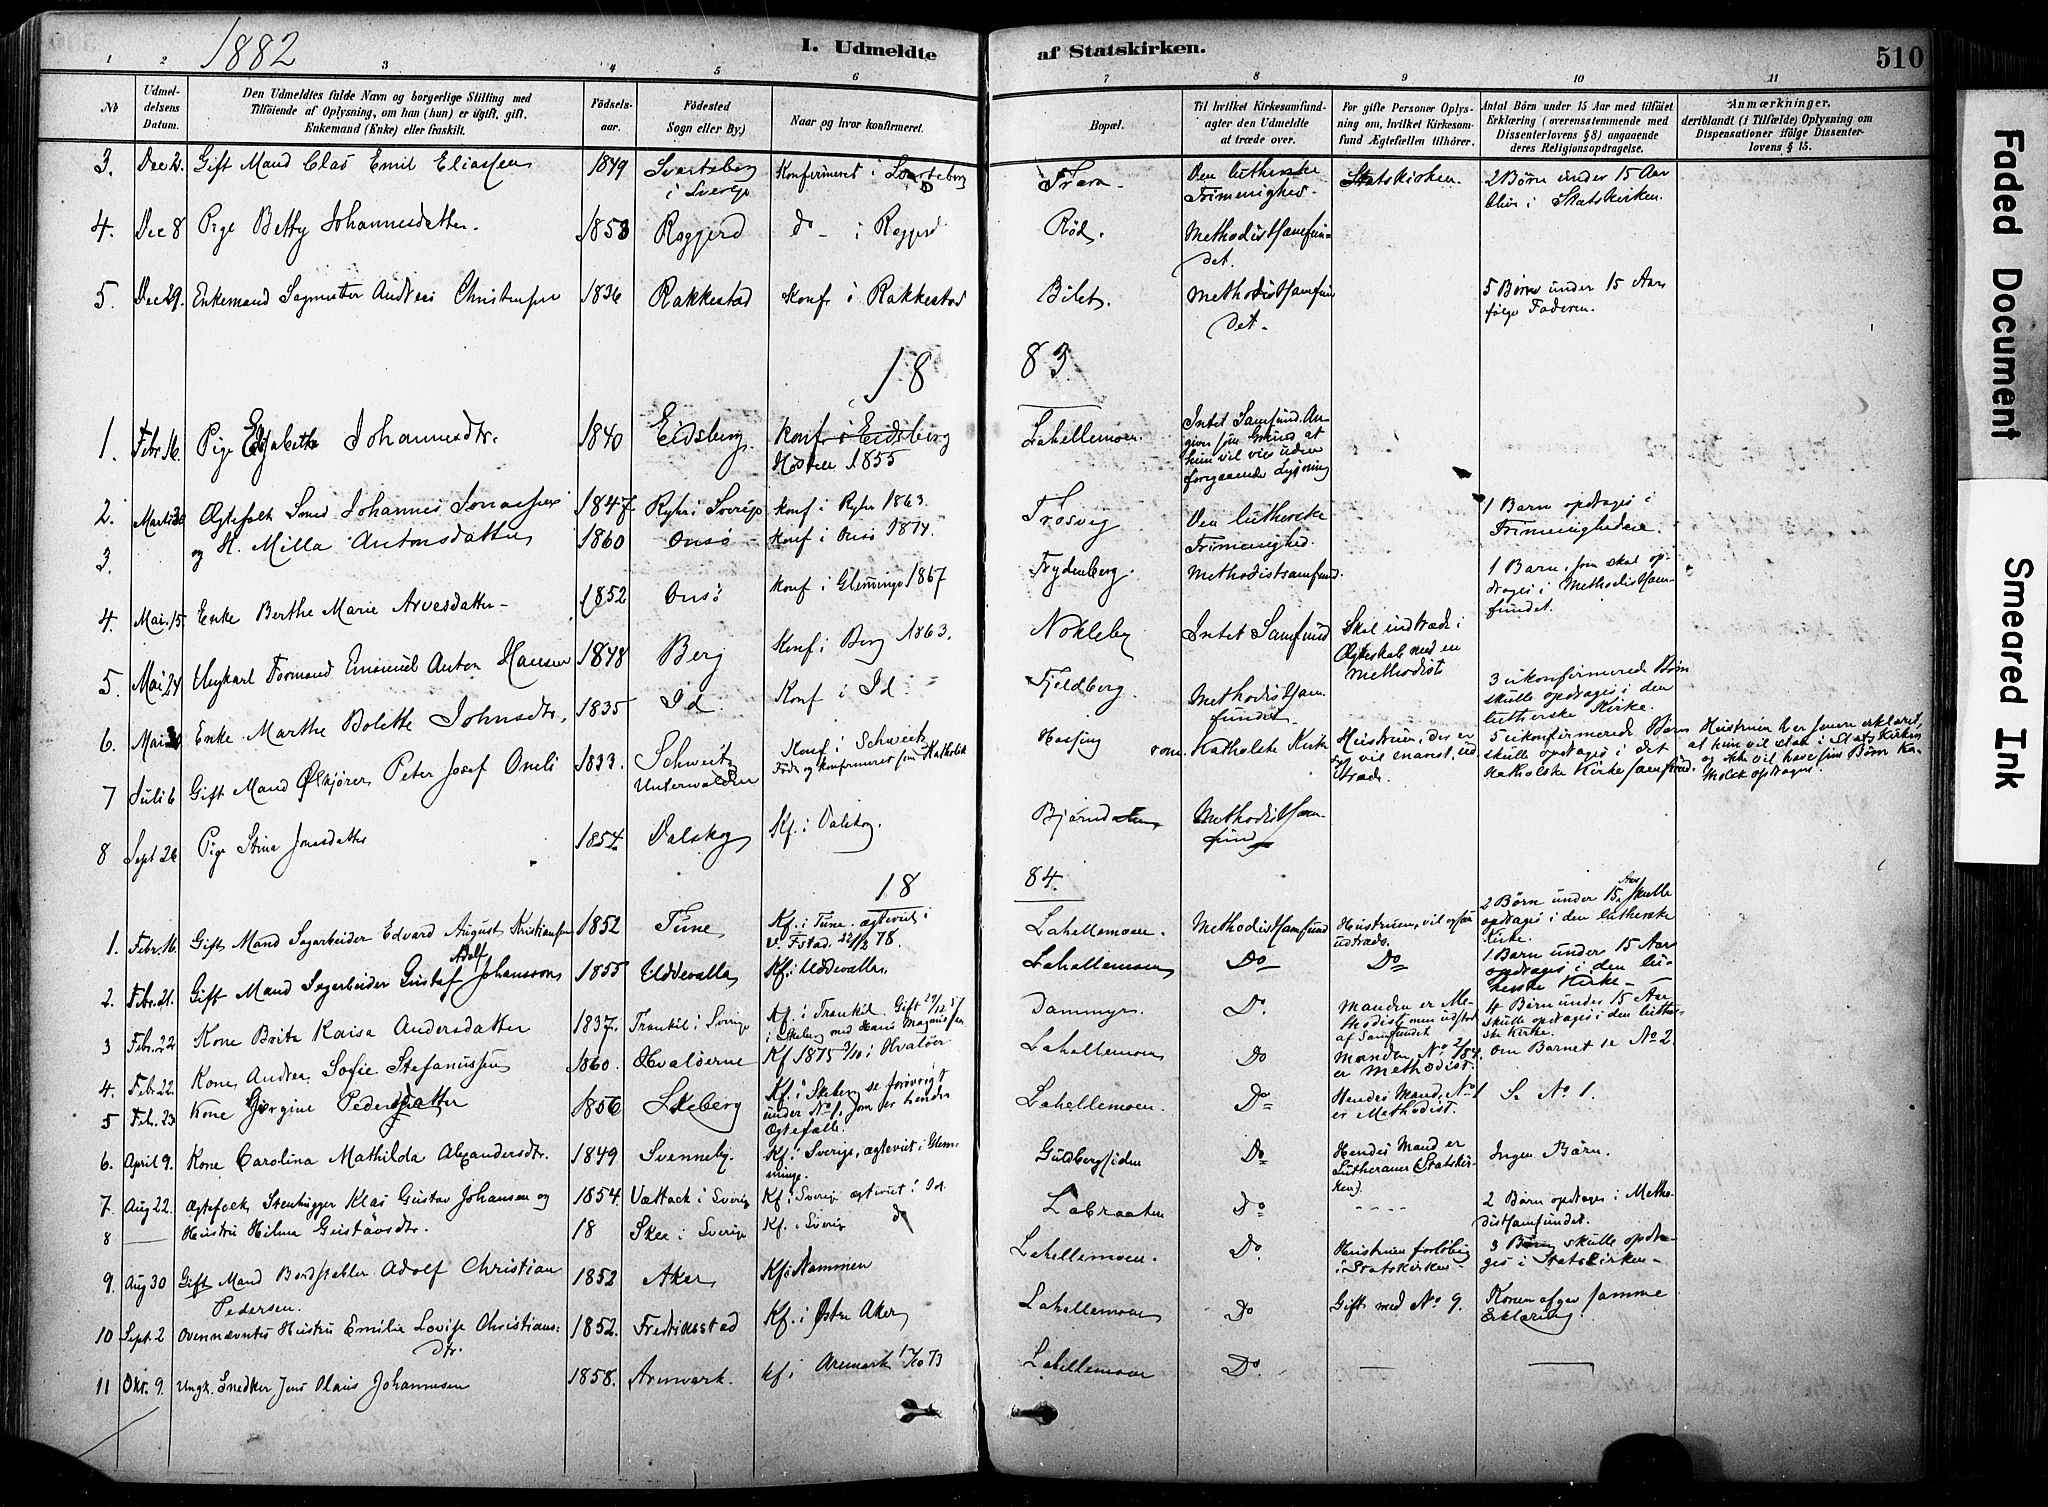 1882
I. Udmeldte af Statskirken. 510
1 2 3 4 5 6 7 8 9 10 11
No
Udmeldelsens Datum.
Den Udmeldtes fulde Navn og borgerlige Stilling med
Tilføiende af Oplysning, om han (hun) er ugift, gift,
Enkemand (Enke) eller fraskilt.
Fødselsaar.
Fødested
Sogn eller By)
Naar og hvor konfirmeret.
Bopæl.
Til hvilket Kirkesamfund-
agter den Udmeldte
at træde over.
For gifte Personer Oplys-
ning om, hvilket Kirkesam-
fund Ægtefællen tilhører.
Antal Børn under 15 Aar med tilføiet
Erklæring (overensstemmende med
Dissenterlovens § 8) angaaende
deres Religionsopdragelse.
Anmærkninger,
deriblandt (i Tilfælde) Oplysning om
Dispensationer ifølge Dissenter-
lovens § 15.
3. Dec 2. Gift Mand Clas Emil Eliassen 1849 Svarteborg i Sverige Konfirmeret i Svarteborg
Den lutherske Frimenighed. Statskirken. 2 Børn under 15 Aar
blive i Statskirken.
4. Dec 8 Pige Betty Johannesdatter. 1853 Roggerd do i Roggerd Rød. Methodistsamfun-
det.
5. Dec 29. Enkemand Sagmester Andreas Christensen 1836 Rakkestad Konf i Rakkestad Bilet. Methodistsamfun
det. 5 Børn under 15 Aar
følge Faderen.
1883.
1. Febr 16. Pige Elisabeth Johannesdtr. 1840 Eidsberg Konf i Eidsberg
Høsten 1855 Lahellemoen. Intet Samfund. An-
giver som Grund at
hun vil vies uden
foregaaende Lysning
2. Marts 30 Ægtefolk Smed Johannes Jonassen 1847 Ryr i Sverige Konf i Ryr 1863. Trosvig Den lutherske
Frimenighed. 1 Barn opdrages i
Frimenigheden.
3. og H. Milla Antonsdatter 1860 Onsø Konf i Onsø 1874.
4. Mai 15 Enke Berthe Marie Arvesdatter 1852 Onsø Konf i Glemminge 1867 Frydenberg. Methodistsamfund. 1 Barn, som skal op-
drages i Methodistsam-
fundet.
5. Mai 24 Ungkarl Formand Emanuel Anton Hansen 1848 Berg Konf i Berg 1863. Nokleby Intet Samfund Skal indtræde i
Ægteskab med en
Methodist
6. Mai Enke Marthe Bolette Johnsdtr. 1835 Id. Konf i Id. Fjeldberg. Methodistsam-
fundet. 3 ukonfirmerede Børn
skulle opdrages i den
lutherske Kirke.
7 Juli 6 Gift Mand Ølkjører Peter Josef Oneli 1833. Schweitz
Unterwalden Konf i Schweitz
Født og konfirmeret som Katholik rom. Katholske Kirke Hustruen, der er
vil snarest ud
træde. 5 ukonfirmerede Børn
skulle opdrages i det
Katholske Kirkesamfund. Hustruen har senere erklæret,
at hun vil staa i Statskirken
og ikke vil have sine Børn Ka-
tholsk opdragne.
8 Sept 26 Pige Stina Jonsdatter 1854. Dalskog Kf. i Dalskog. Bjørndalen Methodistsam-
fund
1884.
1. Febr. 16. Gift Mand Sagarbeider Edvard August Kristiansen 1852 Tune Kf. i Tune. ægteviet i
V. Fstad. 22/2 78. Lahellemoen. Methodistsamfund Hustruen, vil ogsaa
udtræde. 2 Børn under 15 Aar skulle
opdrages i den lutherske
Kirke.
2. Febr. 21. Gift Mand Sagarbeider Gustaf Adolf Johansson 1855 Uddevalla Kf. i Uddevalla Lahellemoen Do Do 1 Barn under 15 Aar
opdrages i den lu-
therske Kirke
3 Febr. 22 Kone Brita Kaisa Andersdatter 1837. Trankil i Sverige Kf. i Trankil. Gift 29/12 57
i Skeberg med Hans Magnussen Dammyr. Do. Manden er Me-
thodist men udtraadt
af Samfundet 4 Børn under 15 Aar
skulle opdrages i den luther-
ske Kirke.
4. Febr. 22. Kone, Andrea Sofie Stefanussen 1860. Hvaløerne Kf. 1875 3/10 i Hvaløer Lahellemoen Do Manden No 2/84.
er Methodist. Om Barnet se No 2.
5 Febr. 23 Kone Jørgine Pedersdatter 1856 Skeberg Kf. i Skeberg se forøvrigt
under No 1, som er hendes
Ægtefælle. Lahellemoen. Do Hendes Mand, No 1
er Methodist. Se No 1.
6. April 9. Kone Carolina Mathilda Alexandersdtr. 1849 Svenneby. Kf. i Sverige, ægteviet i Glem-
minge. Guldbergsiden Do Hendes Mand er
Lutheraner (Statskir-
ken). Ingen Børn.
7. Aug 22. Ægtefolk Stenhugger Klas Gustav Johansen og 1854. Vættack i Sverige Kf. i Sverige ægteviet i Id. Labraaten Do - - - - 2 Børn opdrages i Metho-
distsamfundet.
8 — Hustru Hilma Gustavsdtr. 18 Skee i Sverige Kf. i Sverige do
9. Aug 30 Gift Mand Bordstabler Adolf Christian
Pedersen. 1852 Aker Kf. i Drammen Lahellemoen. Do. Hustruen foreløbig
i Statskirken. 3 Børn skulle opdra-
ges i Statskirken
10 Sept. 2 Ovennævntes Hustru Emilie Lovise Christians-
dtr. 1852. Fredriksstad Kf. i Østre Aker Lahellemoen Do Gift med No 9. Konen afgav samme
Erklæring.
11 Okt. 9. Ungk. Snedker Jens Olaus Johannesen 1858. Aremark. Kf. i Aremark 12/10 73 Lahellemoen Do. — —
Faded Document
Smeared Ink